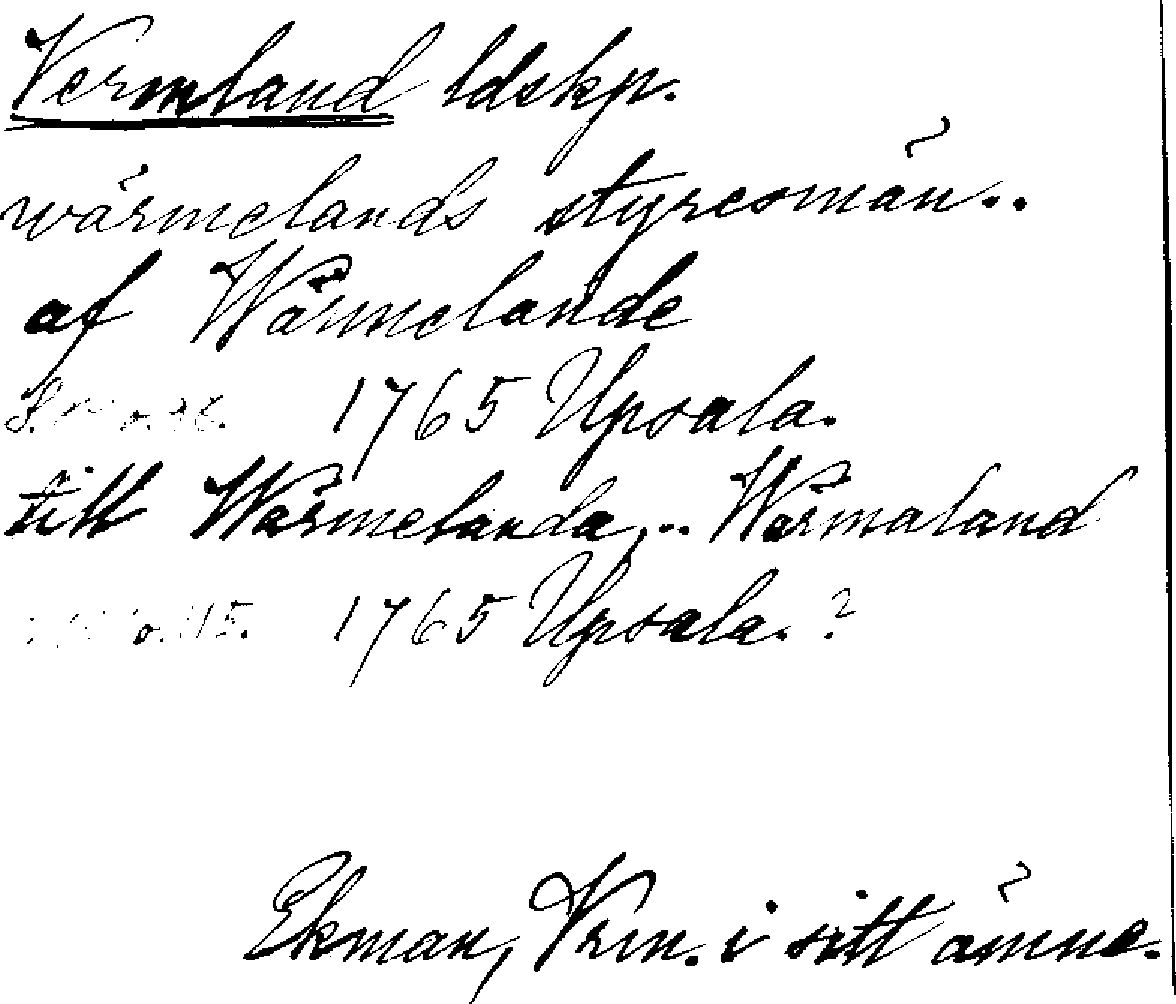 Vermland ldskp.
wärmelands styresmän..
af Wärmelande
1765 Upsala.
till Wärmelanda,.. Wärmaland
o. 115. 1765 Upsala. ?
Ekman, Vrm. i sitt ämne.